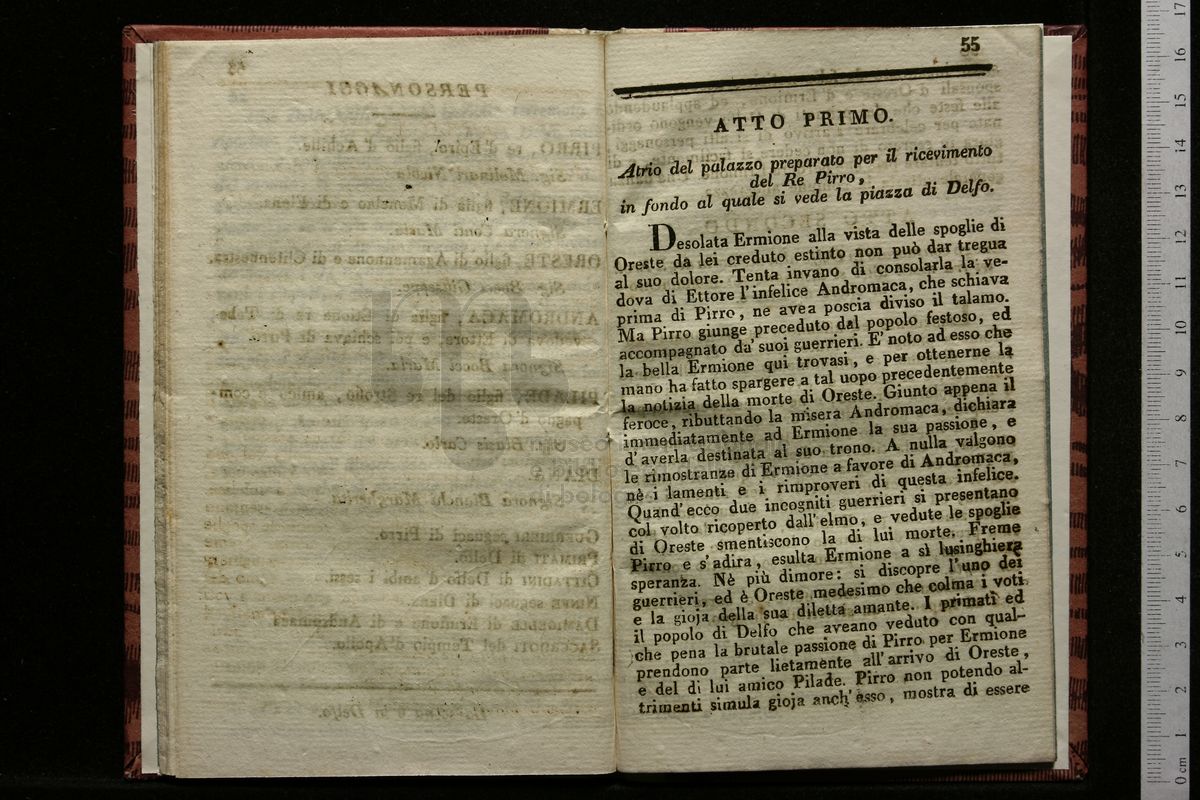 55
ATTO PRIMO.
Atrio del palazzo preparato per il ricevimento
del Re Pirro,
in fondo al quale si vede la piazza di Delfo.
Desolata Ermione alla vista delle spoglie di
Oreste da lei creduto estinto non può dar tregua
al suo dolore. Tenta invano di consolarla la ve-
dova di Ettore l'infelice Andromaca, che schiava
prima di Pirro, ne avea poscia diviso il talamo.
Ma Pirro giunge preceduto dal popolo festoso, ed
accompagnato da' suoi guerrieri. E' noto ad esso che
la bella Ermione qui trovasi, e per ottenerne la
mano ha fatto spargere a tal uopo precedentemente
la notizia della morte di Oreste. Giunto appena il
feroce, ributtando la misera Andromaca, dichiara
immediatamente ad Ermione la sua passione, e
d'averla destinata al suo trono. A nulla valgono
le rimostranze di Ermione a favore di Andromaca,
nè i lamenti e i rimproveri di questa infelice.
Quand' ecco due incogniti guerrieri si presentano
col volto ricoperto dall' elmo, e vedute le spoglie
di Oreste smentiscono la di lui morte. Freme
Pirro e s'adira, esulta Ermione a sì lusinghiera
speranza. Nè più dimore: si discopre l'uno dei
guerrieri, ed è Oreste medesimo che colma i voti
e la gioja della sua diletta amante. I primati ed
il popolo di Delfo che aveano veduto con qual-
che pena la brutale passione di Pirro per Ermione
prendono parte lietamente all' arrivo di Oreste,
e del di lui amico Pilade. Pirro non potendo al-
trimenti simula gioja anch' esso, mostra di essere
PERSONAGGI
PIRRO, re d'Epiro, figlio d'Achille.
ORESTE, figlio di Agamennone e di Clitennestra.
0 cm 1 2 3 4 5 6 7 8 9 10 11 12 13 14 15 16 17